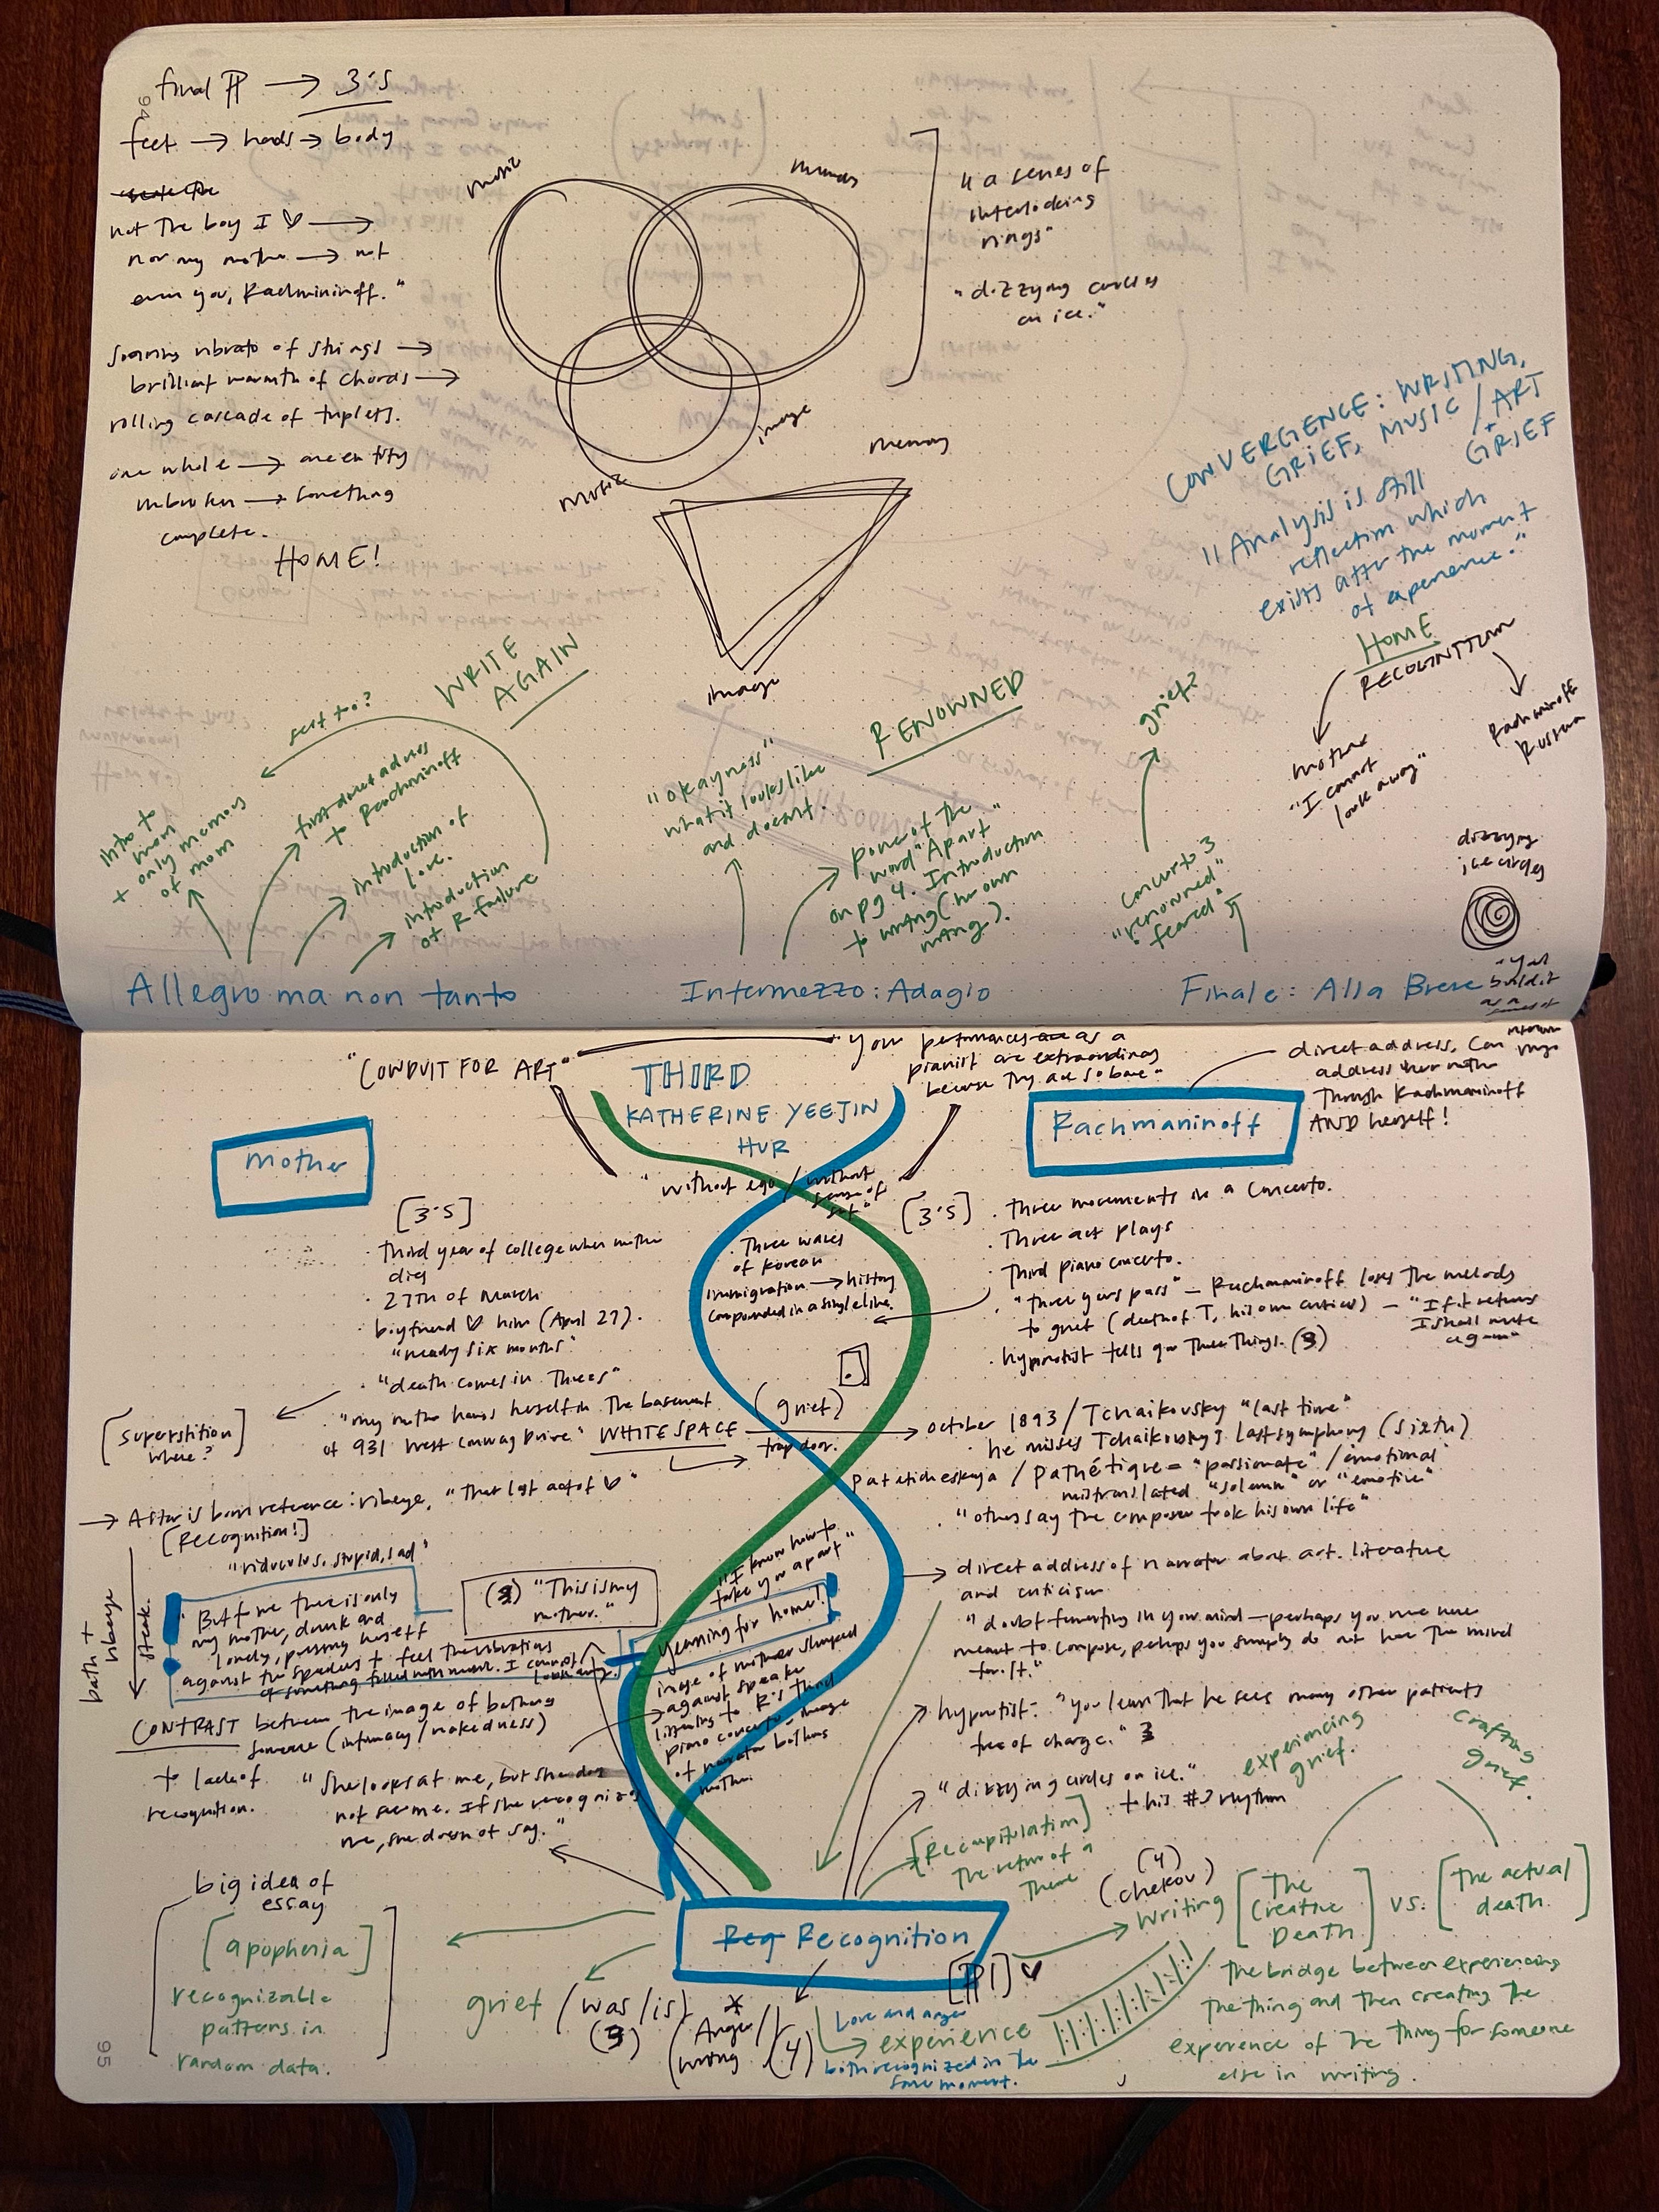 94
final ¶ → 3's
feet → hands → body
not the boy I ♡ →
nor my mother → not
even you, Rachmininoff."
soaring vibrato of strings →
brilliant warmth of chords →
rolling cascade of triplets.
one whole → one entity
unbroken → something
complete.
HOME!
music
image
music
memory
image
"a series of
interlocking
rings"
"dizzying circles
on ice."
CONVERGENCE: WRITING,
GRIEF, MUSIC/ART
+ GRIEF
"Analysis is still
reflection which
exists after the moment
of experience."
HOME
RECOGNITION
mother
"I cannot
look away"
Rachmininoff
Russia
dizzying
ice circles
WRITE
AGAIN
intro to
mom
+ only memories
of mom
first direct address
to Rachmininoff
introduction of
love.
introduction
of R failure
RENOWNED
"okayness"
what it looks like
and doesn't.
power of the
word "Apart"
on pg 4. Introduction
to writing (her own
writing).
grief?
concerto 3
"renowned"
"feared"
Allegro ma non tanto
Intermezzo: Adagio
Finale: Alla Breve
"you
build it
as a
series of
rings
"CONDUIT FOR ART"
THIRD
KATHERINE YEEJIN
HUR
your performances as a
pianist are extraordinary
because they are so bare"
direct address, can
address her mother
through Rachmaninoff
AND herself!
mother
Rachmaninoff
"without ego / without
sense of
self"
[3's]
· Third year of college when mother
dies
· 27th of March
· boyfriend ♡ him (April 27).
"nearly six months"
· "death comes in Threes"
[superstition
where?]
"my mother hangs herself in the basement
of 931 West Conway Drive." WHITE SPACE
(grief)
trap door.
· Three waves
of Korean
immigration → history
compounded in a single line.
[3's]
· Three movements in a concerto.
· Three act plays
· Third piano concerto.
· "three years pass" – Rachmaninoff loses the melody
to grief (death of T, his own critics) – "If it returns
I shall write
again"
· hypnotist tells you Three Things. (3)
October 1893 / Tchaikovsky "last time"
· he misses Tchaikovsky's last symphony (sixth)
Pateticheskaya / Pathétique = "passionate" / emotional
mistranslated "solemn" or "emotive"
· "others say the composer took his own life"
→ A star is born reference: ribeye, "That last act of ♡"
[Recognition!]
"ridiculous, stupid, sad"
"But for me there is only
my mother, drunk and
lonely, pressing herself
against the speakers to feel the vibrations
of something filled with music. I cannot
look away.
(3) "This is my
mother."
bath +
ribeye
steak.
"I know how to
take you apart"
Yearning for home!
image of mother slumped
against speaker
listening to R's third
piano concerto – image
of narrator bathing
mother.
direct address of narrator about art. literature
and criticism
"doubt fomenting in your mind – perhaps you were never
meant to compose, perhaps you simply do not have the mind
for it."
CONTRAST between the image of bathing
someone (intimacy / nakedness)
to lack of
recognition.
"She looks at me, but she does
not see me. If she recognizes
me, she doesn't say."
hypnotist: "you learn that he sees many other patients
free of charge." 3
"dizzying circles on ice."
: this #3 rhythm
experiencing
grief.
crafting
grief.
[Recapitulation]
the return of a
theme
(4)
(chekov)
big idea of
essay
[apophenia]
recognizable
patterns in
random data.
Recognition
[¶1] ♡
writing
[The
Creative
Death]
vs.
[the actual
death.]
grief (was/is)
(3)
*
(Anger/
wrong (4)
Love and anger
→ experience
both recognized in the
same moment.
The bridge between experiencing
the thing and then creating the
experience of the thing for someone
else in writing.
95